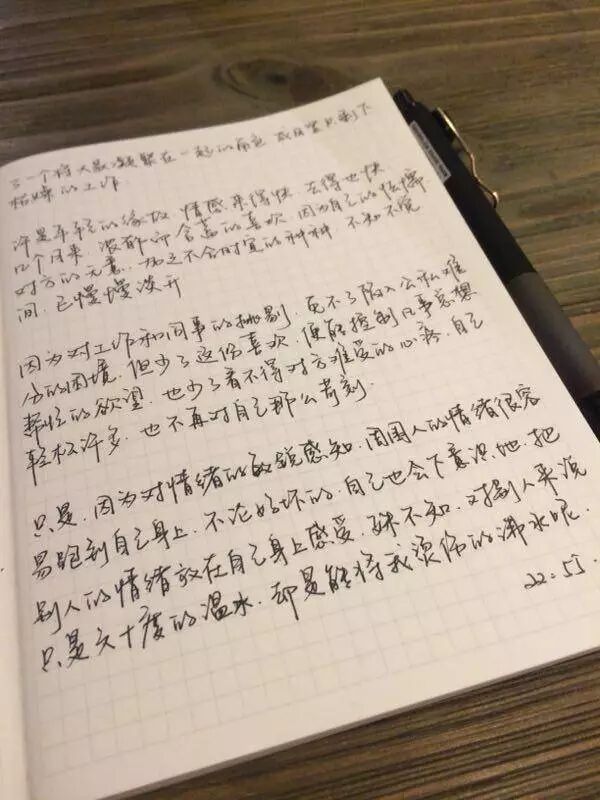 了一个将大家凝聚在一起的 或日常只剩下
枯燥的工作.
许是年轻的缘故. 情感来得快. 去得也快.
几个月来. 浓郁而含蓄的喜欢. 因为自己的怯懦.
对方的无意. 加之不合时宜的种种. 不知不觉
间. 已慢慢淡开
因为对工作和同事的挑剔. 免不了陷入公私难
分的困境. 但少了这份喜欢. 便能控制凡事总想
帮忙的欲望. 也少了看不得对方难受的心疼. 自己
轻松许多. 也不再对自己那么苛刻.
只是. 因为对情绪的敏锐感知. 周围人的情绪很容
易跑到自己身上. 不论好坏的. 自己也会下意识地. 把
别人的情绪放在自己身上感受. 殊不知. 对别人来说
只是六十度的温水. 却是能将我烫伤的沸水呢.
22:51.